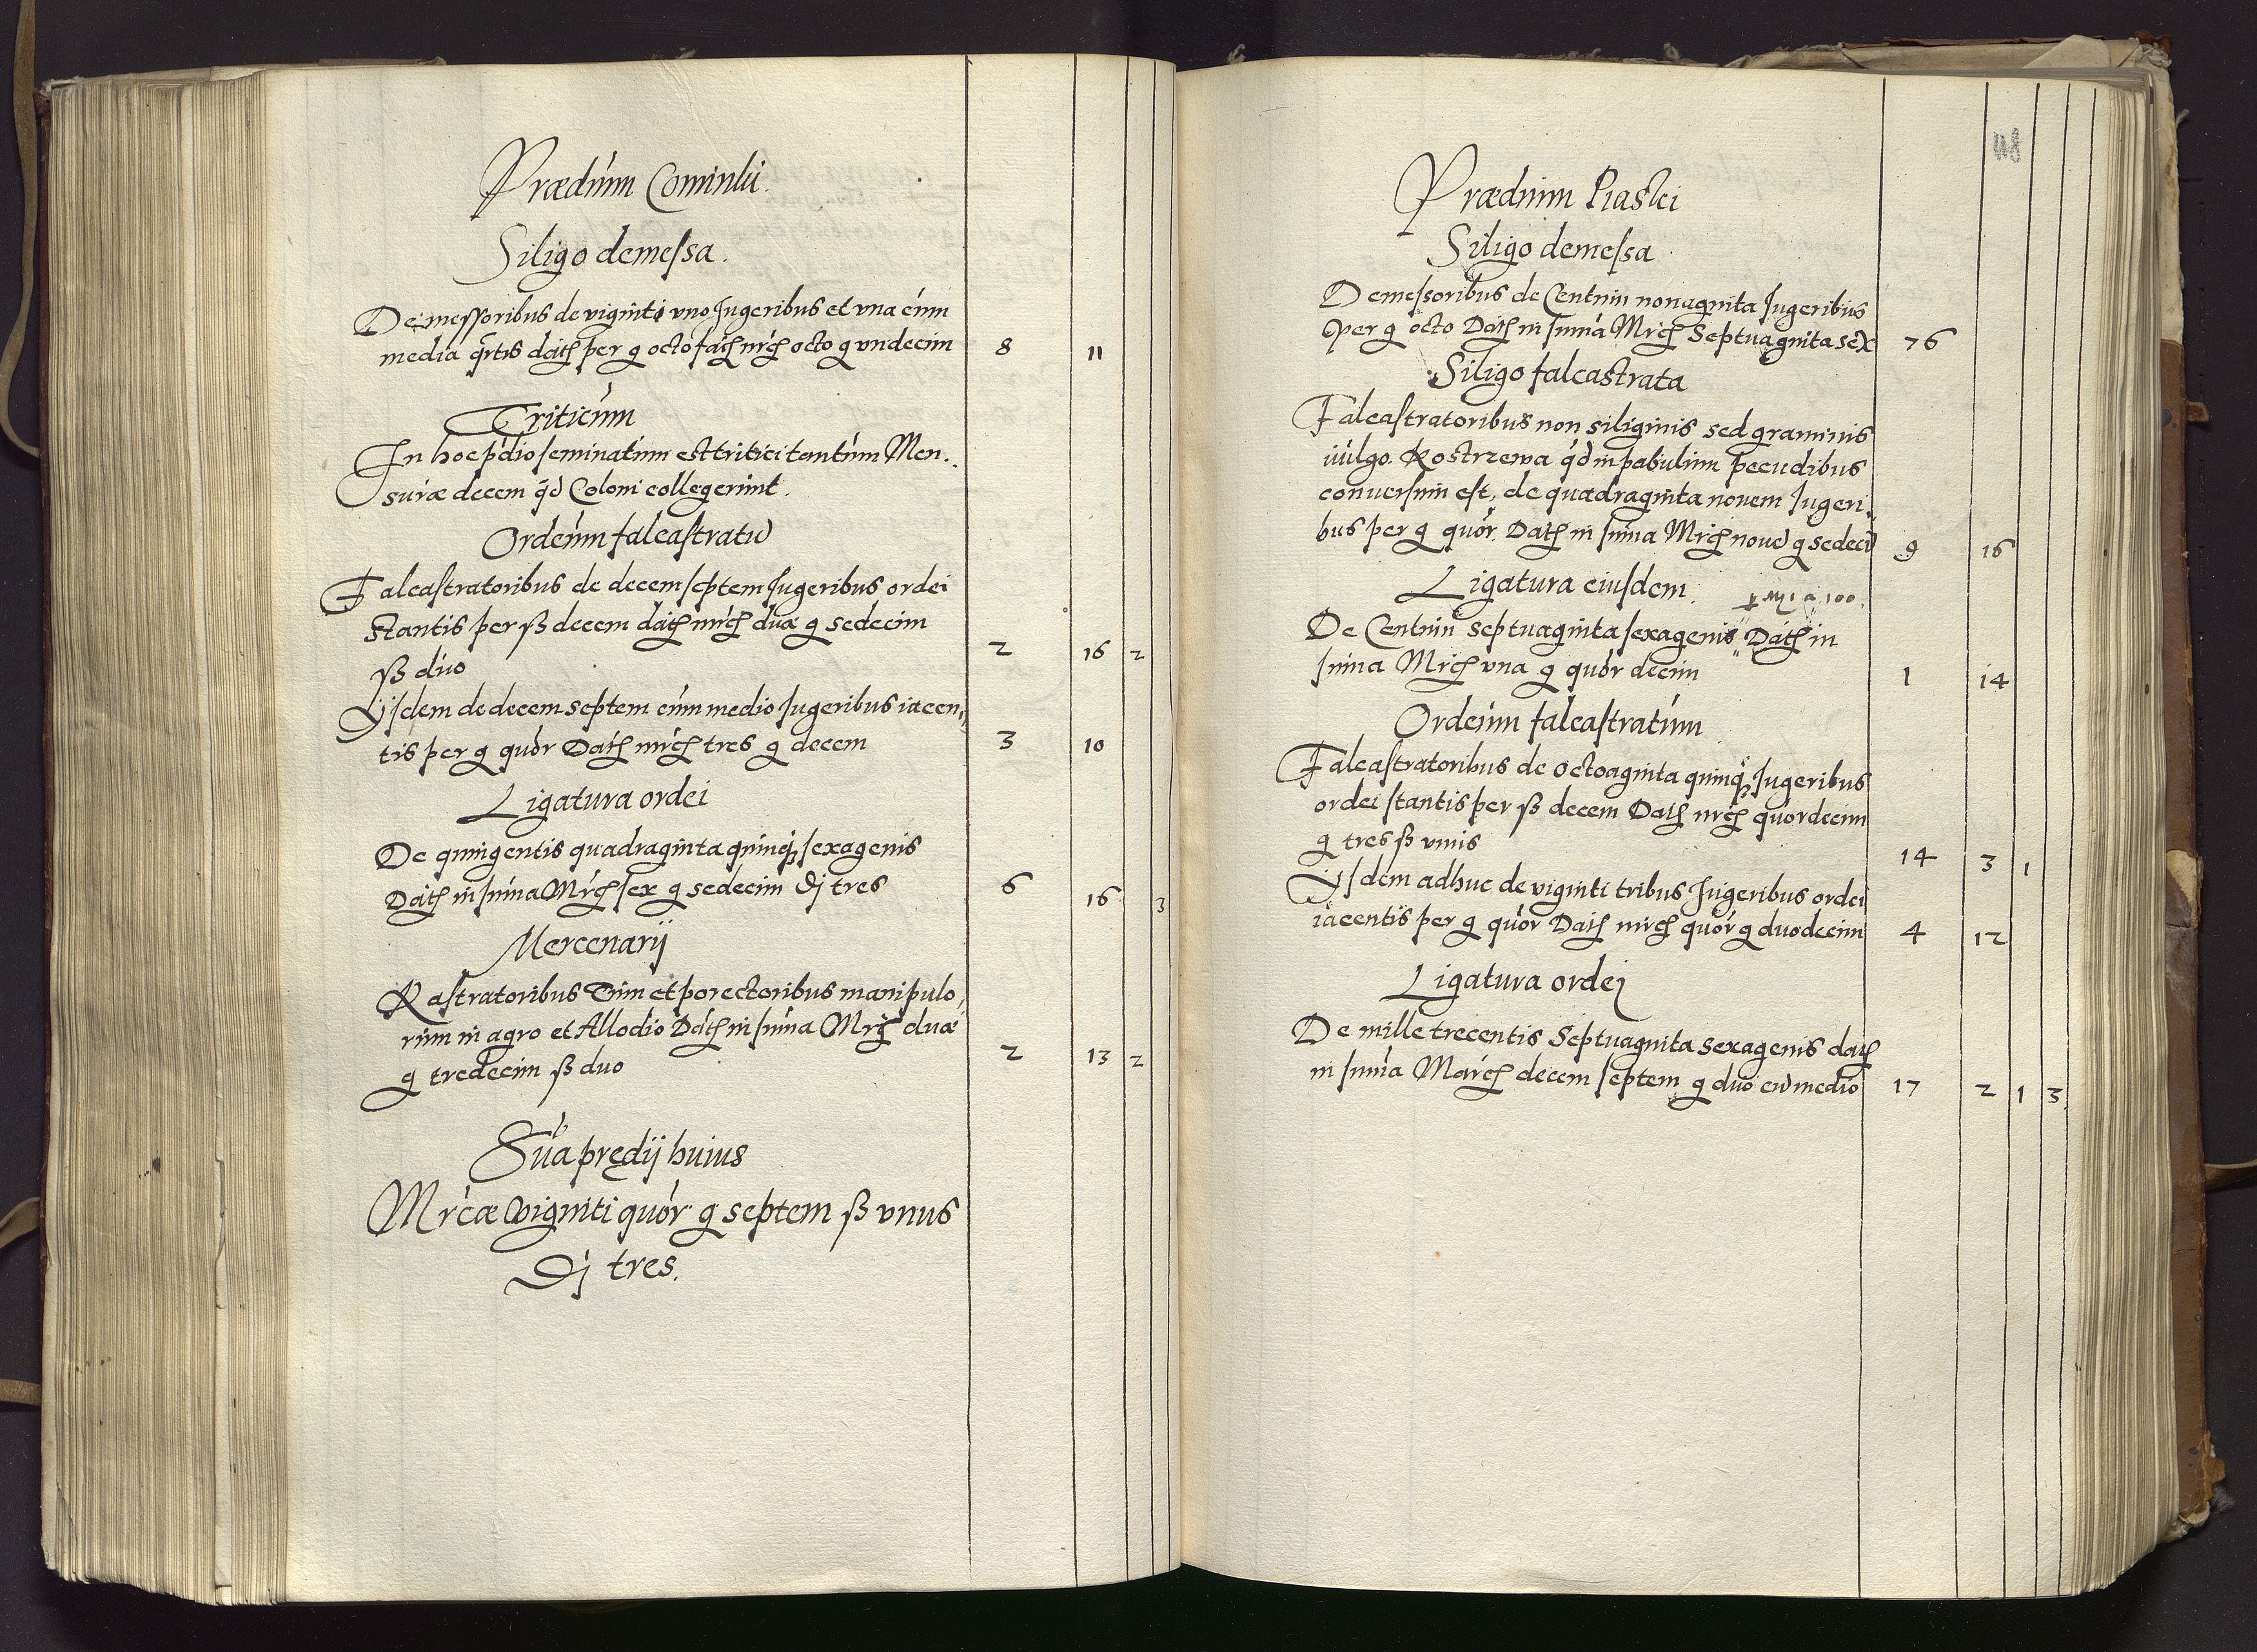 Prædium Cominki.
Siligo demessa.
Demessoribus de viginti uno Jugeribus et vna cum
media qrtis datħ per g octo facħ mrcħ octo g vndecim 8 11
Triticum
In hoc p̄dio seminatum est tritici tantum Men-
suræ decem q̄d Coloni collegerunt.
Ordeum falcastratū
Falcastratoribus de decem septem Jugeribus ordei
stantis per ß decem datħ mrcħ duæ g sedecim
ß duo 2 16 2
Ijsdem de decem septem cum medio Jugeribus iacen-
tis per g quor Datħ mrcħ tres g decem 3 10
Ligatura ordei
De quingentis quadraginta quinqꝫ sexagenis
Datħ in suma Mrcħ sex g sedecim Dj tres 6 16 3
Mercenarij
Rastratoribus Tum et porectoribus manipulo-
rum in agro et Allodio Datħ in suma Mrcħ duæ
g tredecim ß duo 2 13 2
Sūa prędij huius
Mrcæ viginti quor g septem ß vnus
Dj tres.
48
Prædium Piaski
Siligo demessa
Demessoribus de Centum nonaginta Jugeribus
per g octo Datħ in suma Mrcħ Septuaginta sex 76
Siligo falcastrata
Falcastratoribus non siliginis sed graminis
uulgo Kostrzewa q̄d in pabulum pecudibus
conuersum est, de quadraginta nouem Jugeri-
bus per g quor. Datħ in suma Mrcħ nouē g sedecī 9 16
Ligatura eiusdem. a 100.
De Centum septuaginta sexagenis Datħ in
suma Mrcħ vna g quor decim 1 14
Ordeum falcastratum
Falcastratoribus de octoaginta quinqꝫ Jugeribus
ordei stantis per ß decem Datħ mrcħ quordecim
g tres ß vnus 14 3 1
Ijsdem adhuc de viginti tribus Jugeribus ordei
iacentis per g quor Datħ mrcħ quor g duodecim 4 12
Ligatura ordej
De mille trecentis Septuaginta sexagenis datħ
in suma Marcħ decem septem g duo cū medio 17 2 1 3